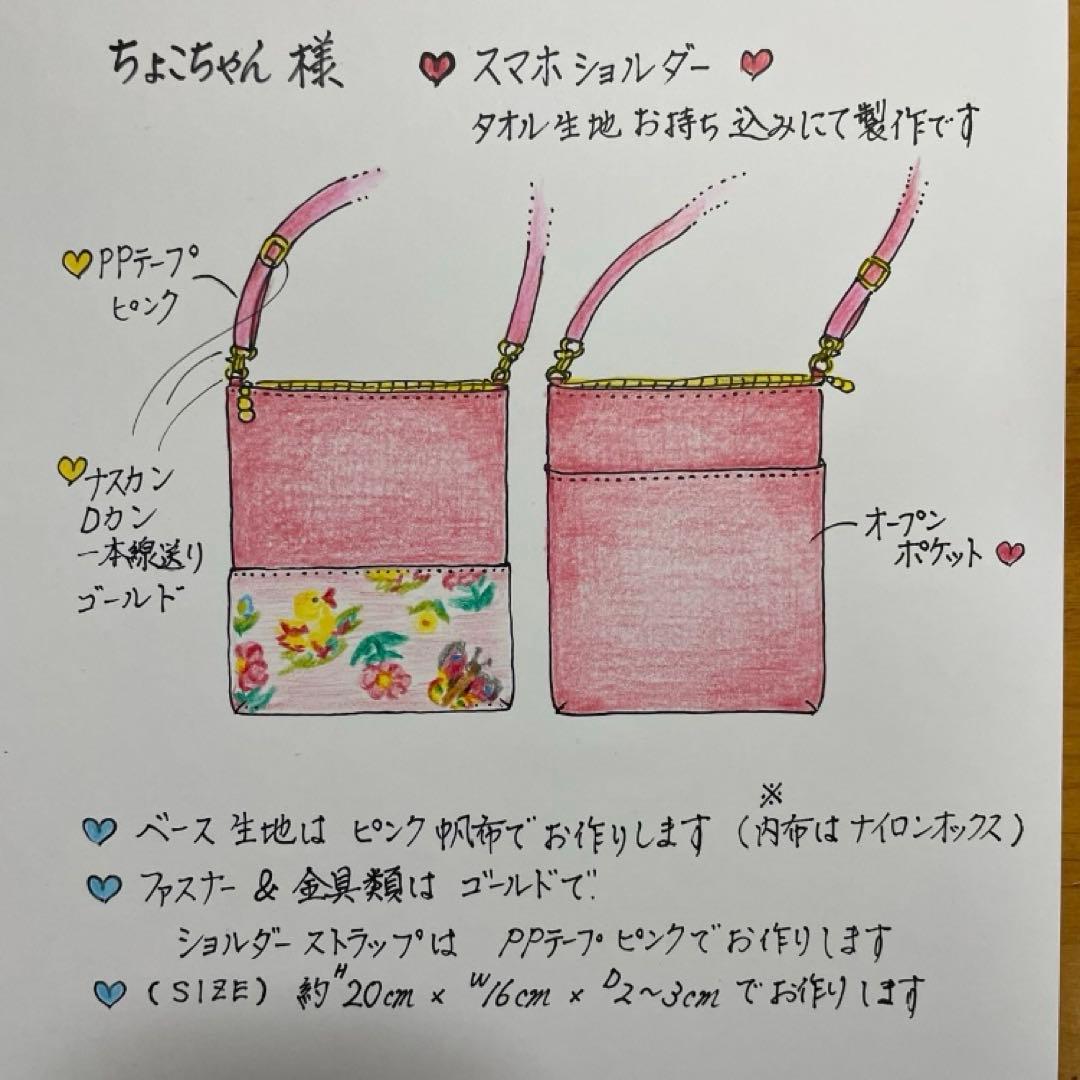 ちょこちゃん 様
♥ スマホショルダー ♥
タオル生地 お持ち込みにて製作です
♥PPテープ
ピンク
♥ナスカン
Dカン
一本線送り
ゴールド
オープン
ポケット ♥
※
♥ ベース生地は ピンク帆布でお作りします (内布はナイロンオックス)
♥ ファスナー & 金具類は ゴールドで
ショルダーストラップは PPテープピンクでお作りします
♥ (SIZE) 約H20cm × W16cm × D2~3cm でお作りします